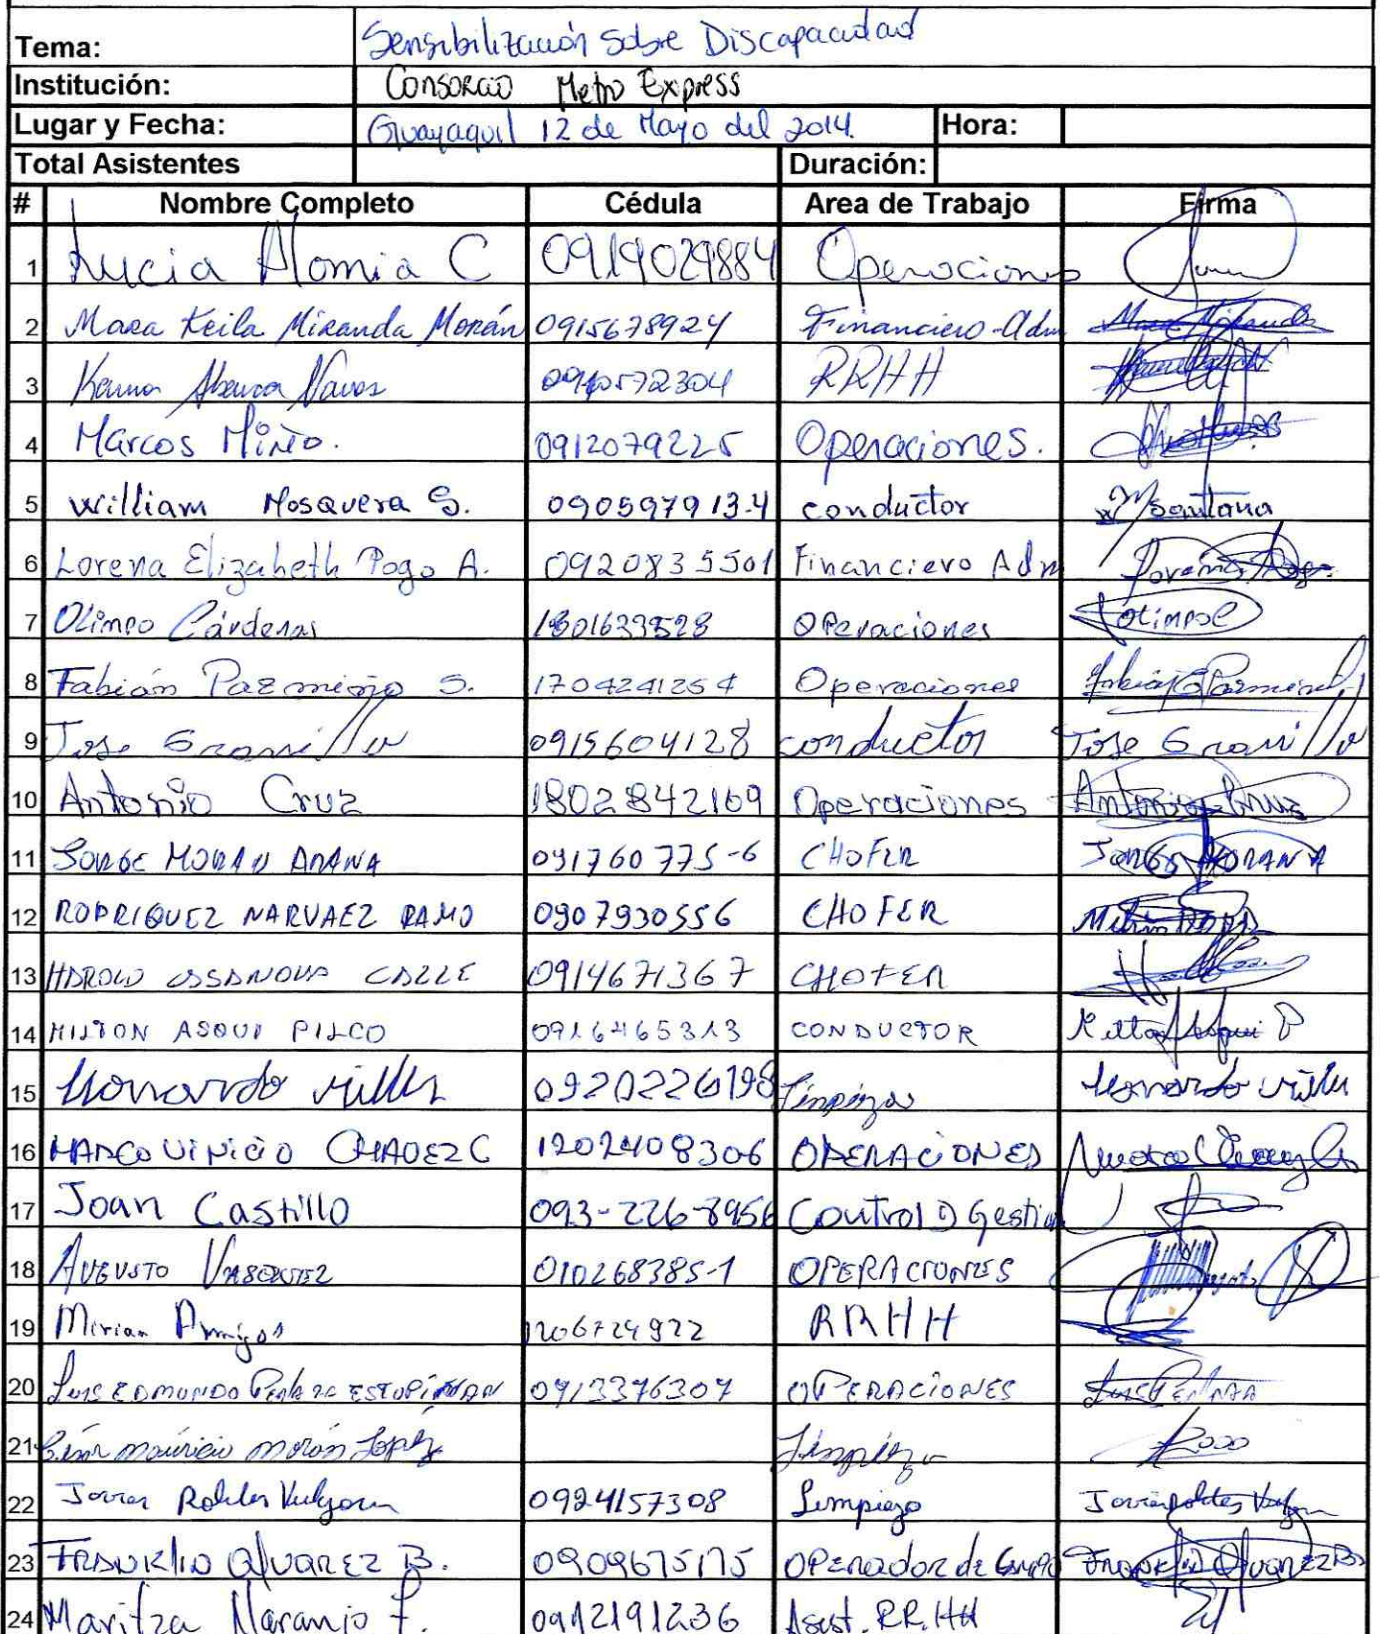 Tema: Sensibilización sobre Discapacidad
Institución: Consorcio Metro Express
Lugar y Fecha: Guayaquil 12 de Mayo del 2014. Hora:
Total Asistentes Duración:
# Nombre Completo Cédula Area de Trabajo Firma
1 Lucia Alomia C 0919029884 Operaciones
2 Mara Keila Miranda Morán 0915678924 Financiero-Adm
3 RRHH
4 Marcos Miño. 0912079225 Operaciones.
5 William Mosquera S. 090597913-4 conductor W Santana
6 Lorena Elizabeth Pogo A. 0920835501 Financiero Adm Lorena Pogo
7 Olimpo Cárdenas Operaciones Olimpo C
8 Fabián Pazmiño S. 1704241254 Operaciones Fabián Pazmiño
9 Jose 0915604128 conductor Jose
10 Antonio Cruz 1802842169 Operaciones Antonio Cruz
11 JORGE MORAN ARANA 091760775-6 CHOFER JORGE MORAN A
12 RODRIGUEZ NARVAEZ 0907930556 CHOFER
13 HAROLD CASANOVA CALLE 0914671367 CHOFER
14 MILTON ASQUI PILCO 0916465313 CONDUCTOR Milton Asqui P
15 Leonardo 0920226198 Limpieza Leonardo
16 MARCO VINICIO CHAVEZ C 1202408306 OPERACIONES
17 Joan Castillo 093-226-8956 Control D Gestion
18 AUGUSTO VASQUEZ 010268385-1 OPERACIONES
19 Mirian 1206724922 RRHH
20 LUIS EDMUNDO ESTUPIÑAN 0913376307 OPERACIONES
21 mauricio morán López Limpieza
22 Javier Robles 0924157308 Limpieza Javier Robles
23 FRANKLIN ALVAREZ B. 0909675175 OPerador de FRANKLIN ALVAREZ B
24 Maritza Naranjo F. 0912191236 Asist. RR.HH